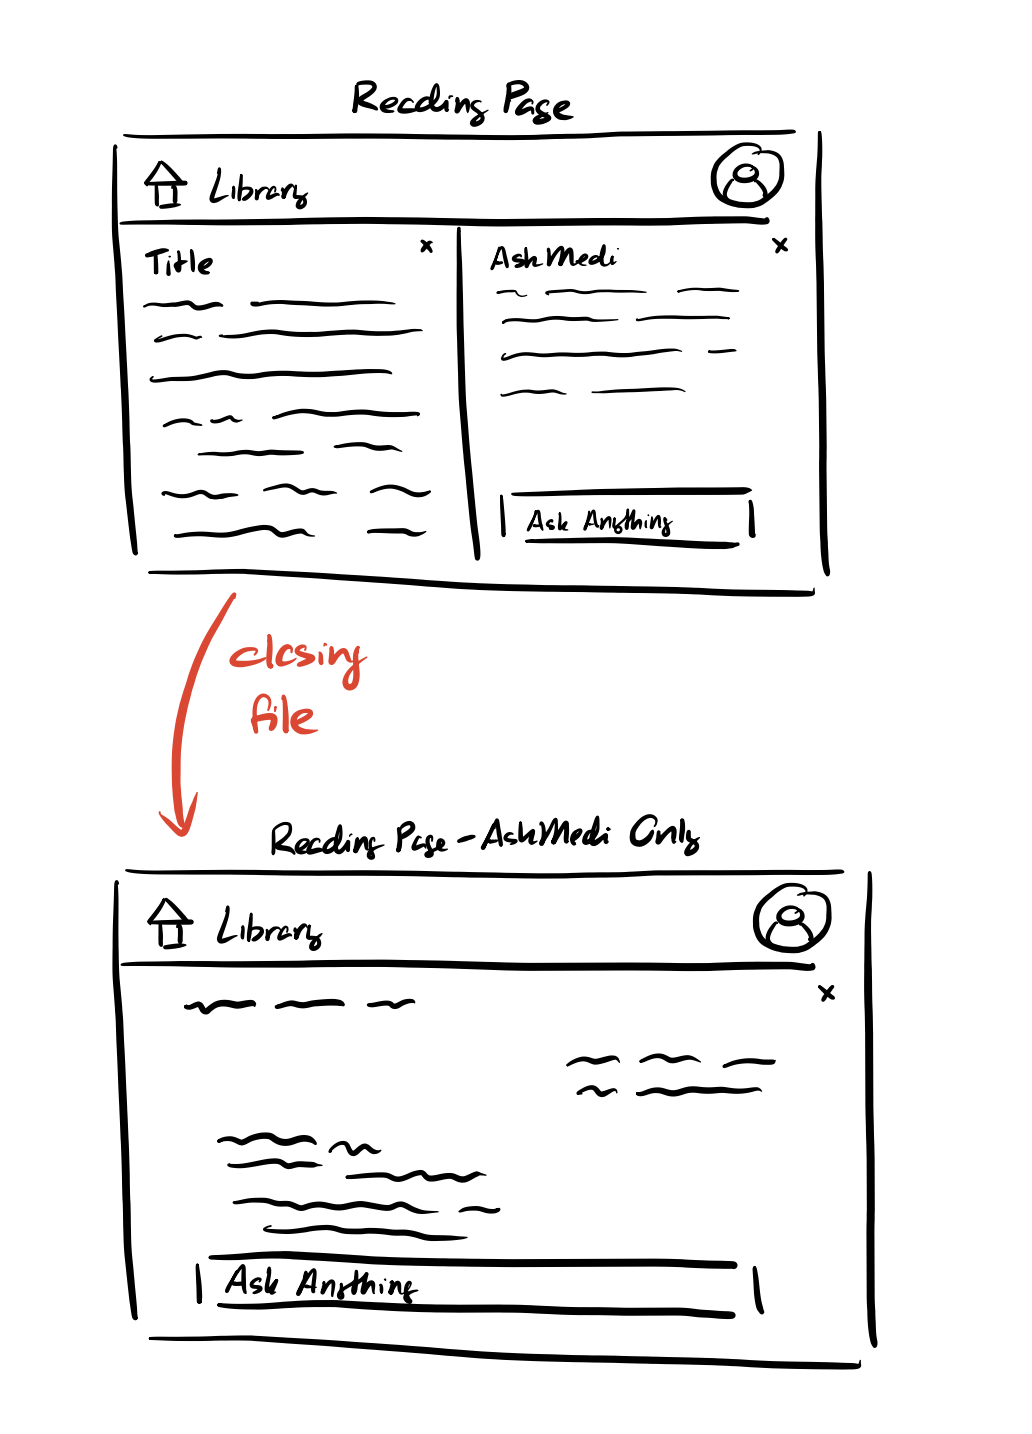 Reading Page
Library
Title x
AskMedi x
Ask Anything
closing
file
Reading Page - AskMedi Only
Library
x
Ask Anything